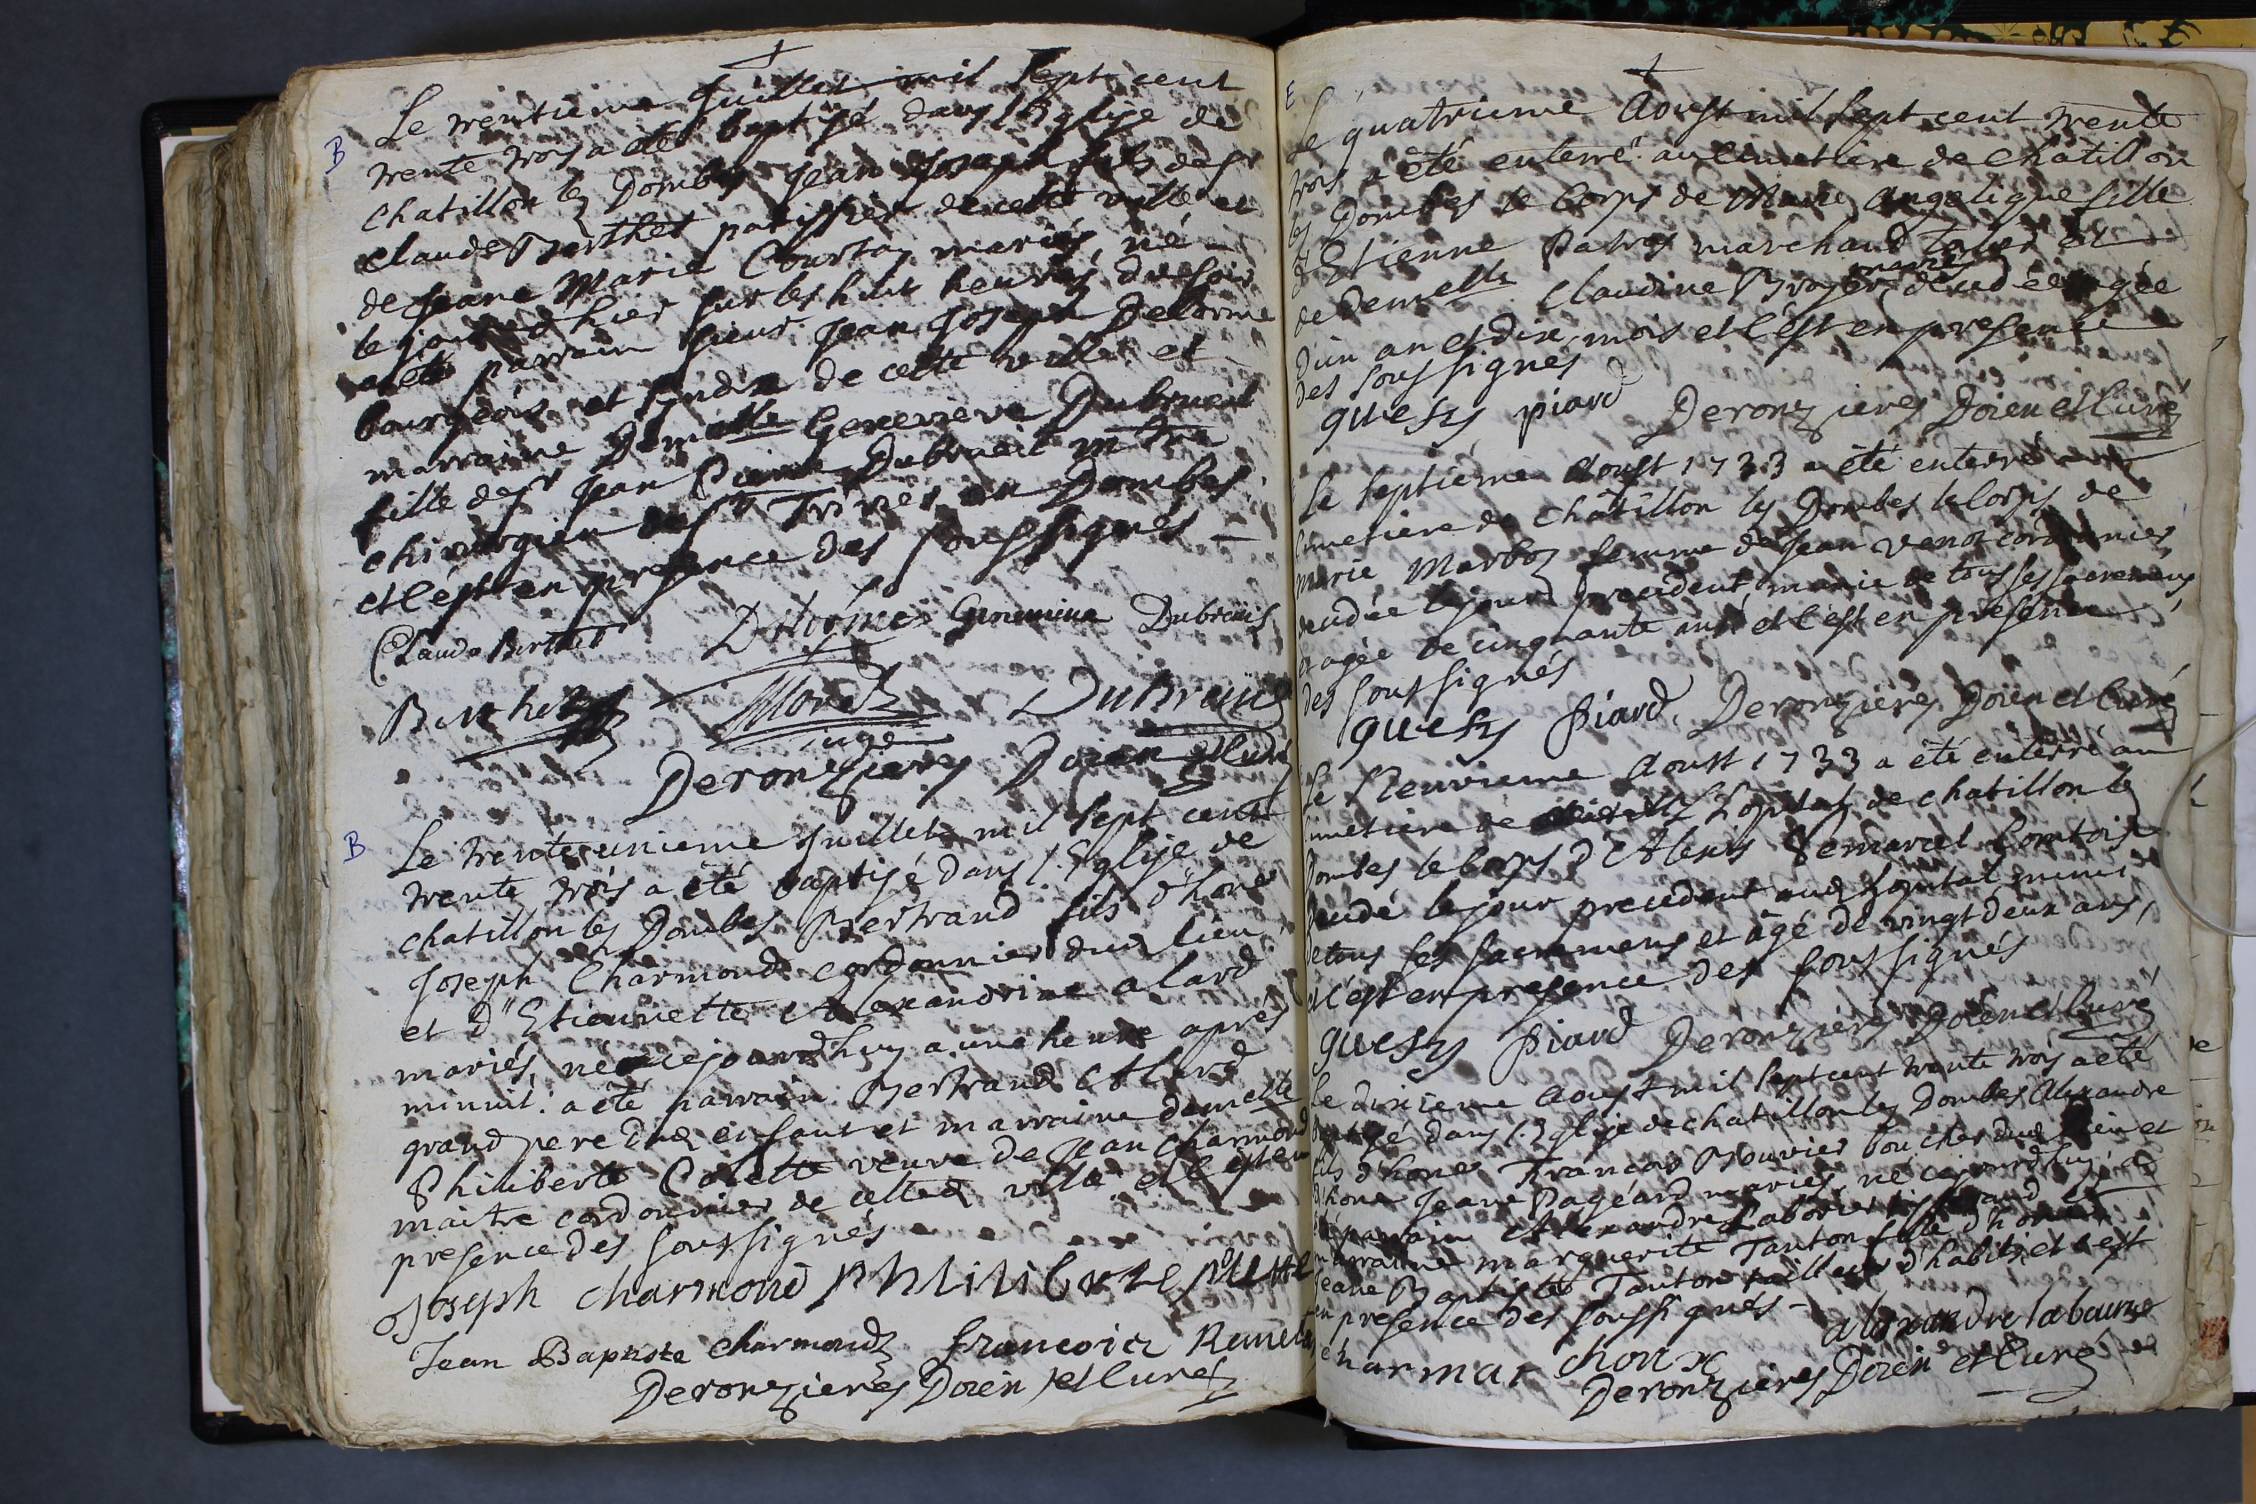 B
Le trentieme Juillet mil sept cent
trente trois a eté baptisé dans l'Eglise de
chatillon les Dombes Jean Joseph fils de sr
Claude Berthet patissier de cette ville et
de Jeane Marie Courtoy mariés, né
le jour d'hier sur les huit heures du soir
a été parrain sieur Jean Joseph Delorme
bourgeois et sindic de cette ville et
marraine Demelle Genevieve Dubrueil
fille de sr Jean Pierre Dubrueil mtre
chirurgien de st Trivier en Dombes
et c'est en presence des soussignés
Claude Berthet Delorme Genevieve Dubreuil
Berthet Moret DuBreuil
juge
Deronzieres Doien et Curé
B
Le trente unieme Juillet mil sept cent
trente trois a été baptisé dans l'Eglise de
chatillon les Dombes Bertrand fils d'hone
Joseph Charmond cordonnier dud lieu,
et d'Etiennette Alexandrine alard
mariés, né cejourdhuy a une heure après
minuit: a été parrain Bertrand Alard
grand pere dud enfant et marraine demelle
Philiberte Colette veuve de Jean Charmond
maitre cordonnier de cette ville et c'est en
presence des soussignés
Joseph charmond
Jean Baptiste Charmond francoise
Deronzieres Doien et Curé
E
Le quatrieme Aoust mil sept cent trente
trois a été enterré au cimetiere de Châtillon
les Dombes le Corps de Marie Angelique fille
d'Etienne marchand et
de Demelle Claudine Broyer mariés, decedée agée
d'un an et dix mois et c'est en presence
des soussignés
quesy piard Deronzieres Doien et Curé
Le septieme Aoust 1733 a été enterré au
cimetiere de Châtillon les Dombes le Corps de
Marie Marboz femme de Jean cordonnier
decedée le jour precedent, munie de tous ses sacremens
et agée de cinquante ans et c'est en presence
des soussignés
quesy piard. Deronzieres Doien et Curé
Le Neuvieme Aoust 1733 a été enterré au
cimetiere de l'opital de chatillon les
Dombes le Corps d'Alexis Comtois
decedé le jour precedent aud hopital muni
de tous ses sacremens et âgé de vingt deux ans,
et c'est en presence des soussignés
quesy piard Deronzieres Doien et Curé
Le dixieme Aoust mil sept cent trente trois a eté
baptisé dans l'Eglise de chatillon les Dombes Alexandre
fils d'hone François Bouvier boucher dud lieu et
d'hone Jeane Pagéard mariés, né cejourdhuy, a
été parrain Alexandre et
marraine marguerite Tanton fille d'hone
Jeane Baptiste Tanton tailleur d'habits, et c'est
en presence des soussignés
alexandre labaume
charmar choux
Deronzieres Doien et Curé